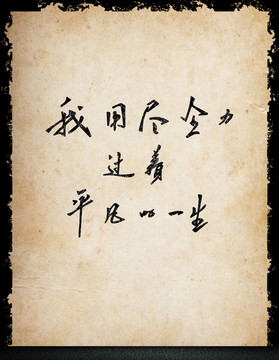 我用尽全力
过着
平凡的一生